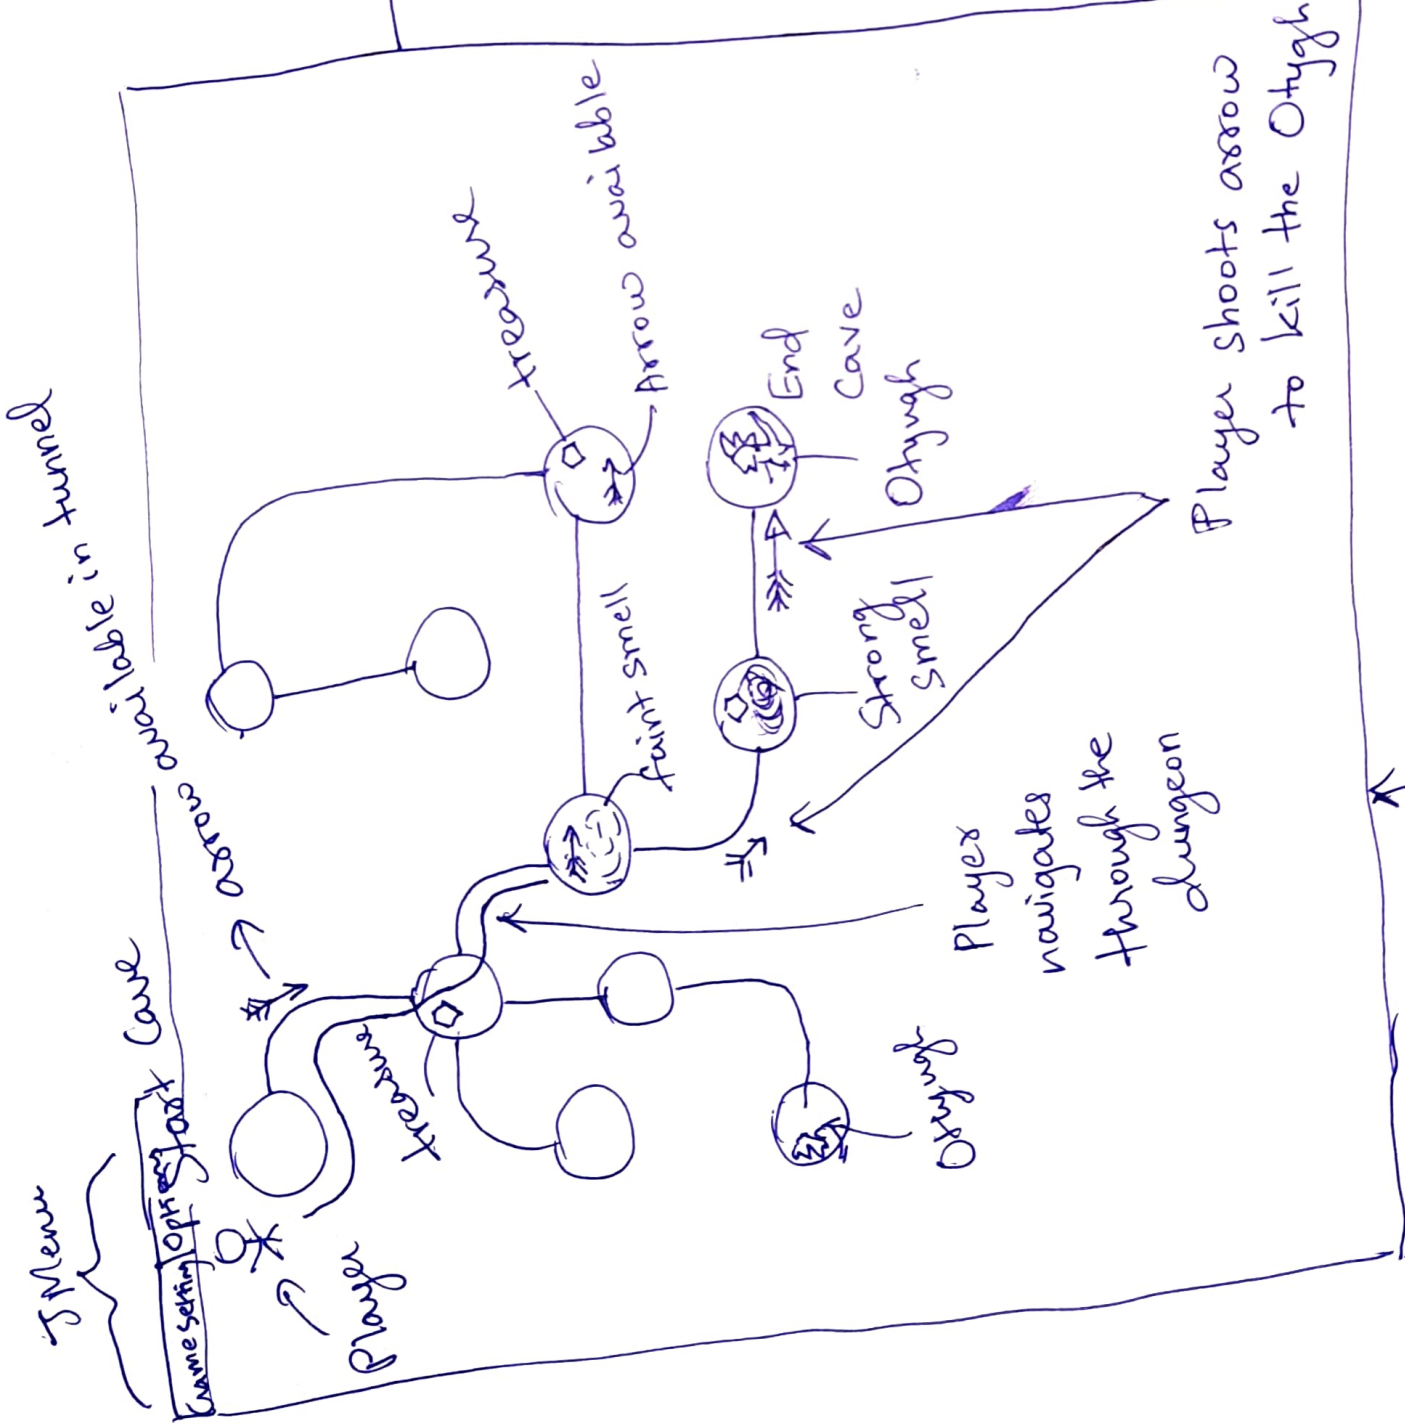 JMenu
Game Setting
Options
Start Cave
arrow available in tunnel
Player
treasure
treasure
Arrow available
faint smell
End
Cave
Otyugh
Strong
Smell
Otyugh
Player
navigates
through the
dungeon
Player shoots arrow
to kill the Otygh